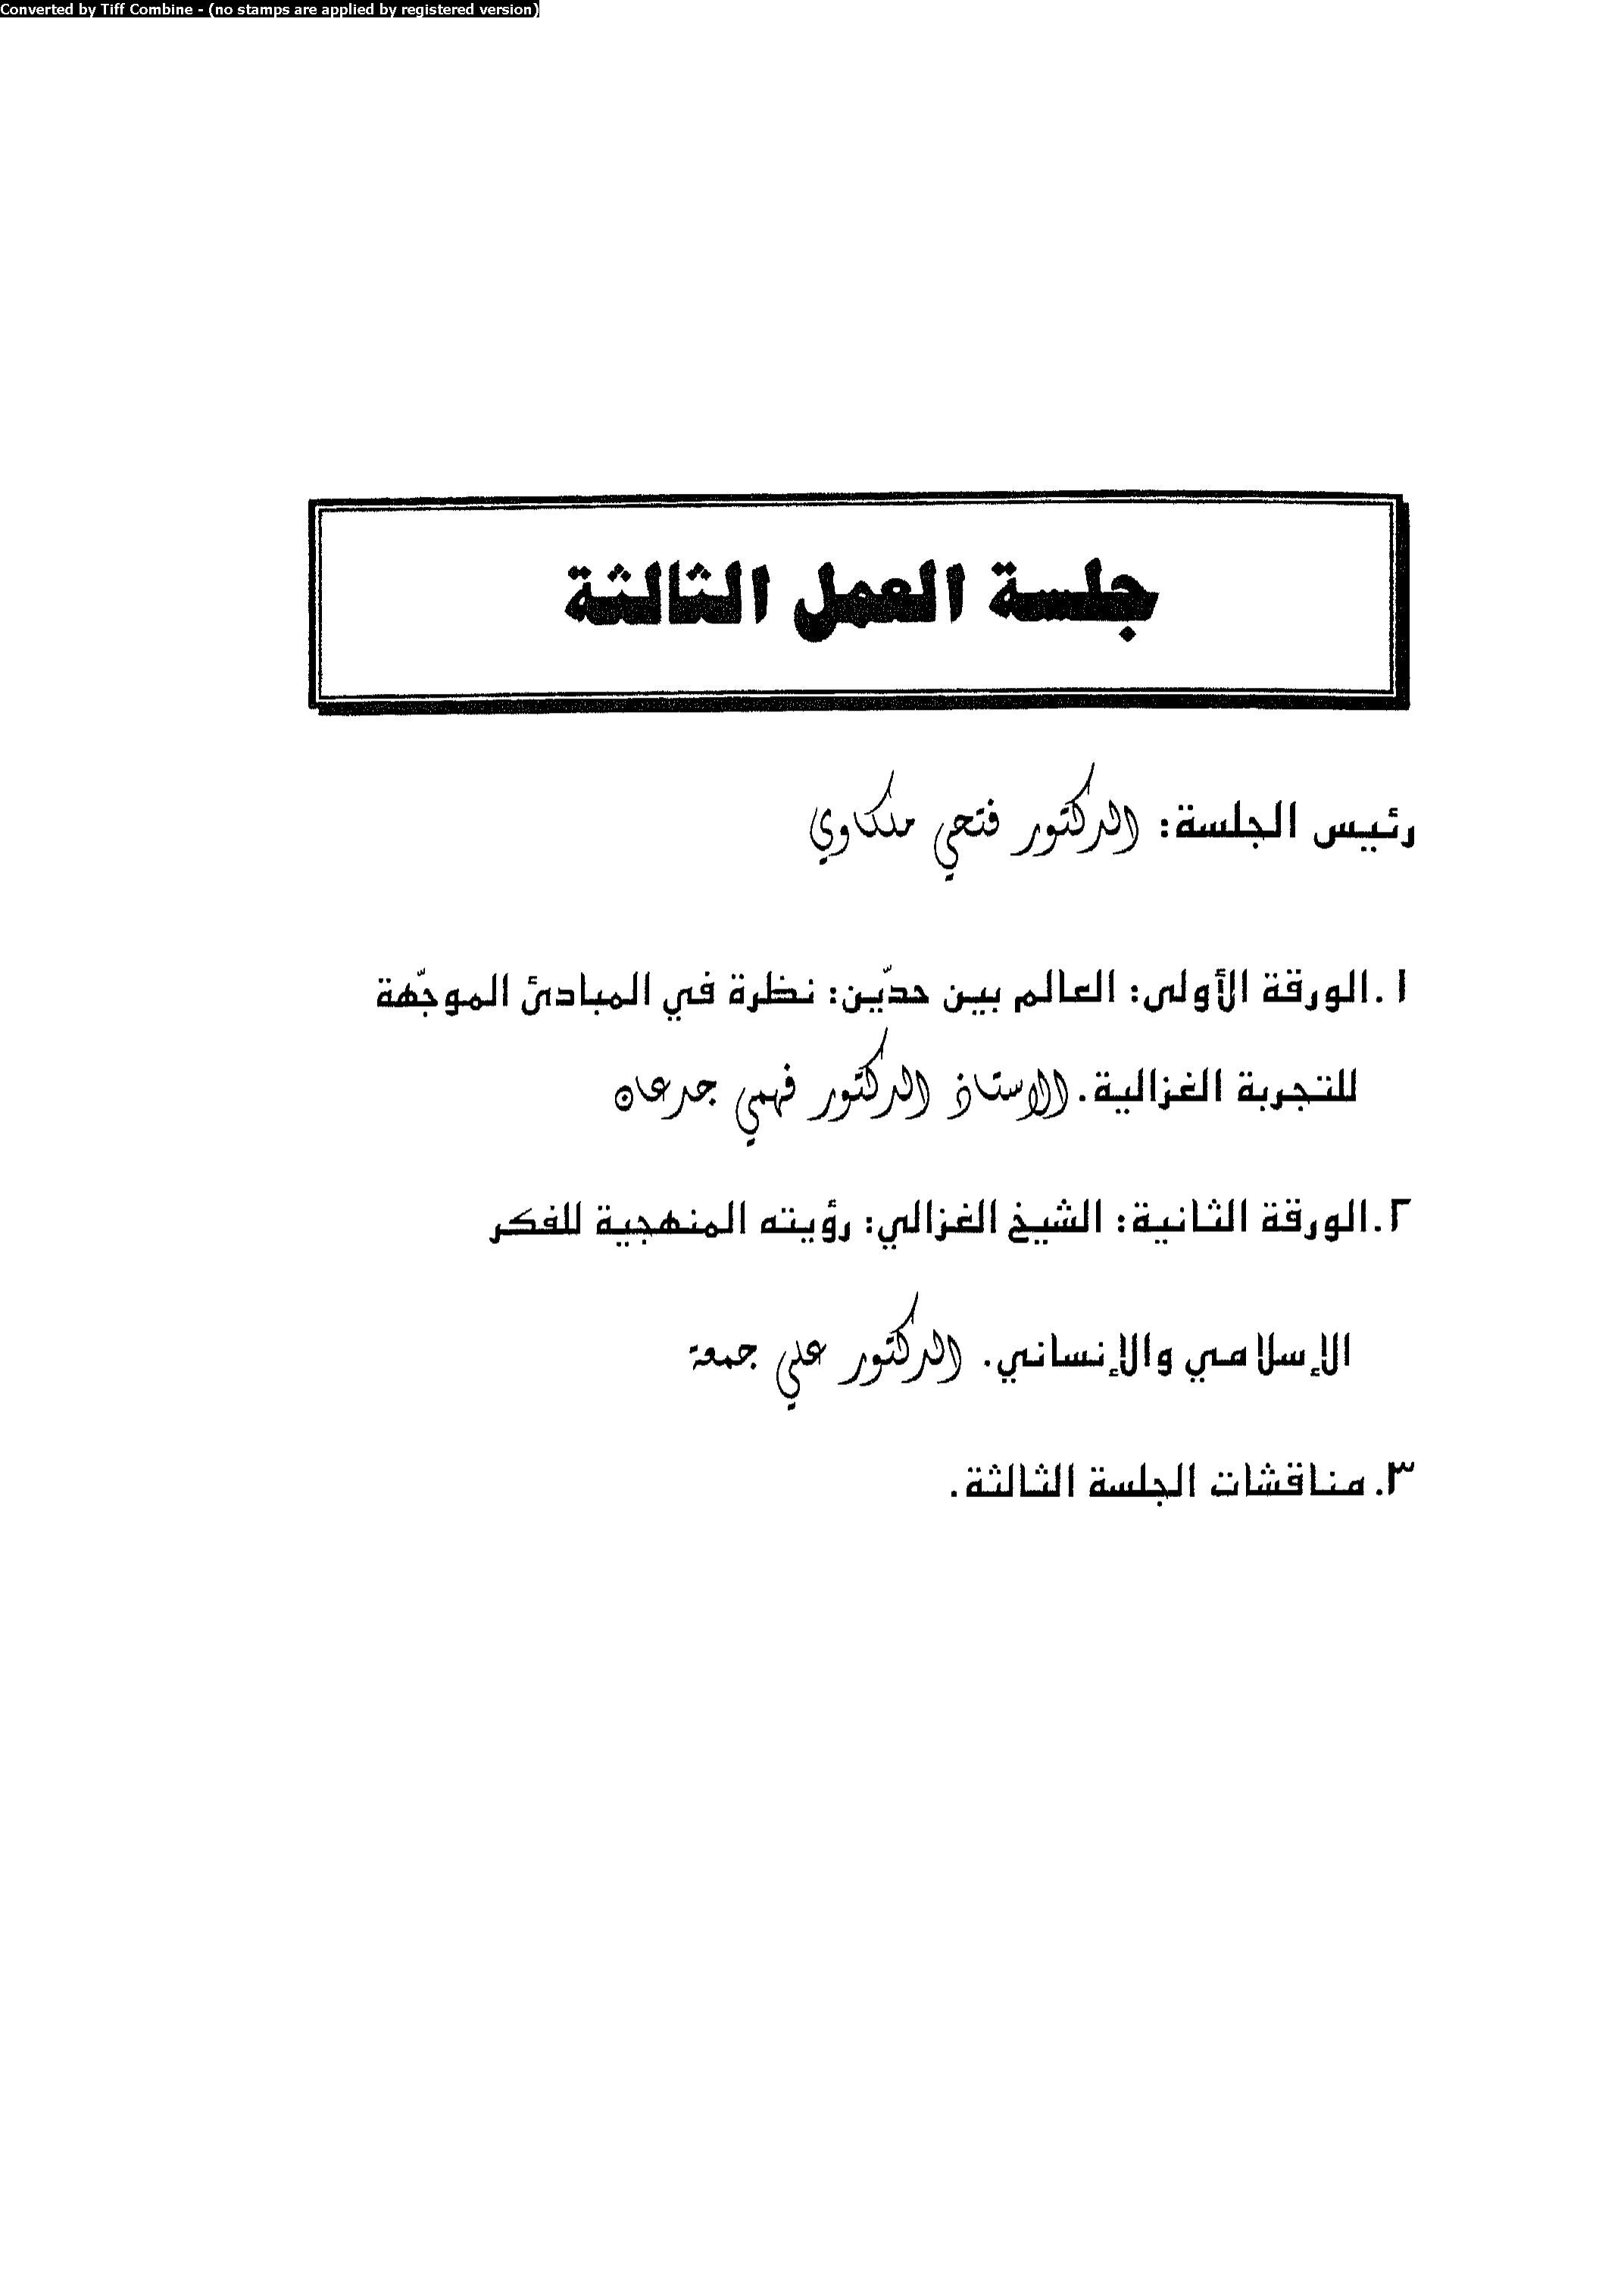 Converted by Tiff Combine - (no stamps are applied by registered version)
جلسة العمل الثالثة
رئيس الجلسة: الدكتور فتحي ملكاوي
١.الورقة الأولى: العالم بين حدّين: نظرة في المبادئ الموجّهة
للتجربة الغزالية. الاستاذ الدكتور فهمي جدعان
٢.الورقة الثانية: الشيخ الغزالي: رؤيته المنهجية للفكر
الإسلامي والإنساني. الدكتور علي جمعة
٣. مناقشات الجلسة الثالثة.